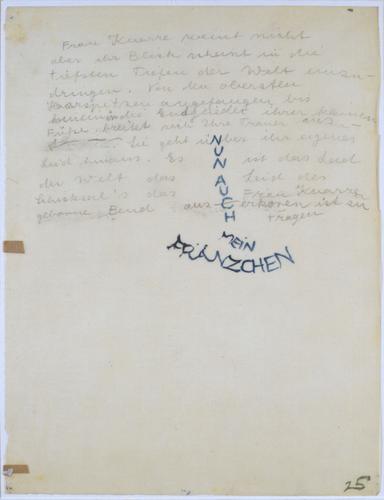 Frau Knarre weint nicht
aber ihr Blick scheint in die
tiefsten Tiefen der Welt einzu-
dringen. Von den obersten
Haarspitzen angefangen bis
in die Endglieder ihrer kleinen
Füße breitet sich Ihre Trauer aus
Sie geht über ihr eigenes
Leid hinaus. Es ist das Leid
der Welt das Leid des
Schicksal's das Frau Knarre
geborene Bend auserkoren ist zu
tragen
NUN AUCH
MEIN
FRÄNZCHEN
25